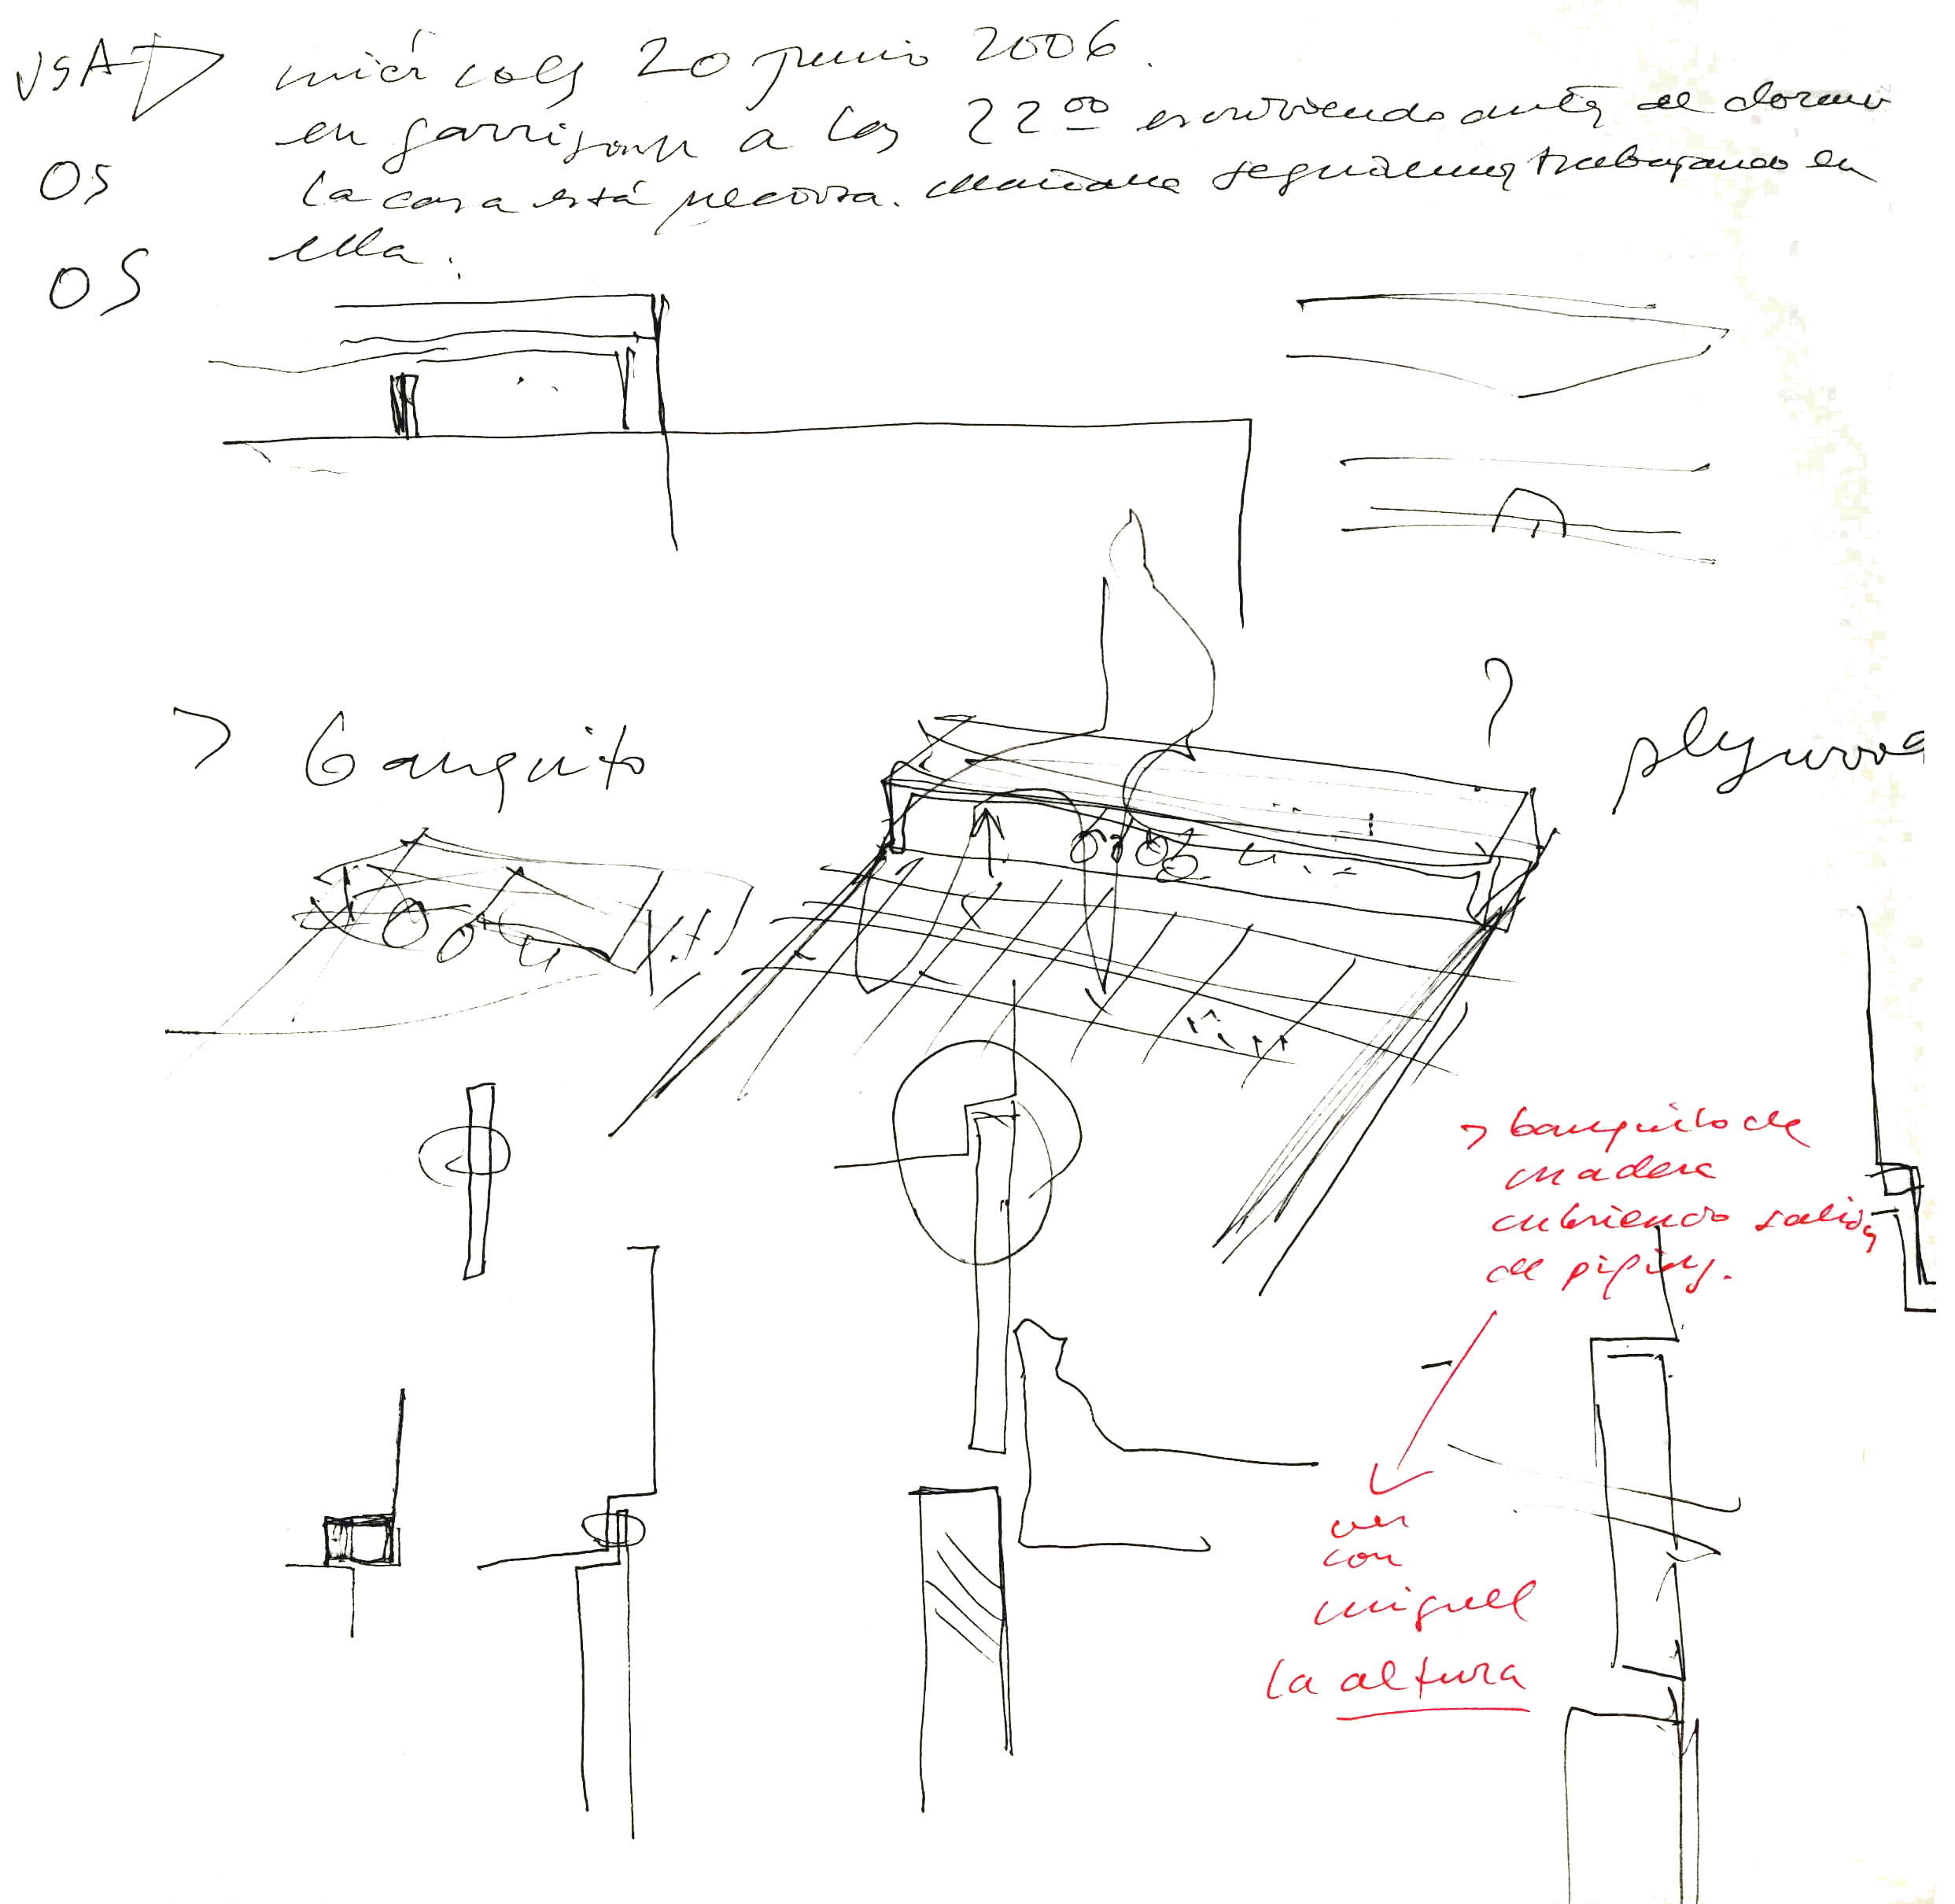 USA
miércoles 20 junio 2006.
en garrison a las 22 00 escribiendo antes de dormir
05
la casa está preciosa. mañana seguiremos trabajando en
ella.
05
> banquito
?
plywood
> banquito de
madera
cubriendo salida
de piping.
ver
con
miguel
la altura